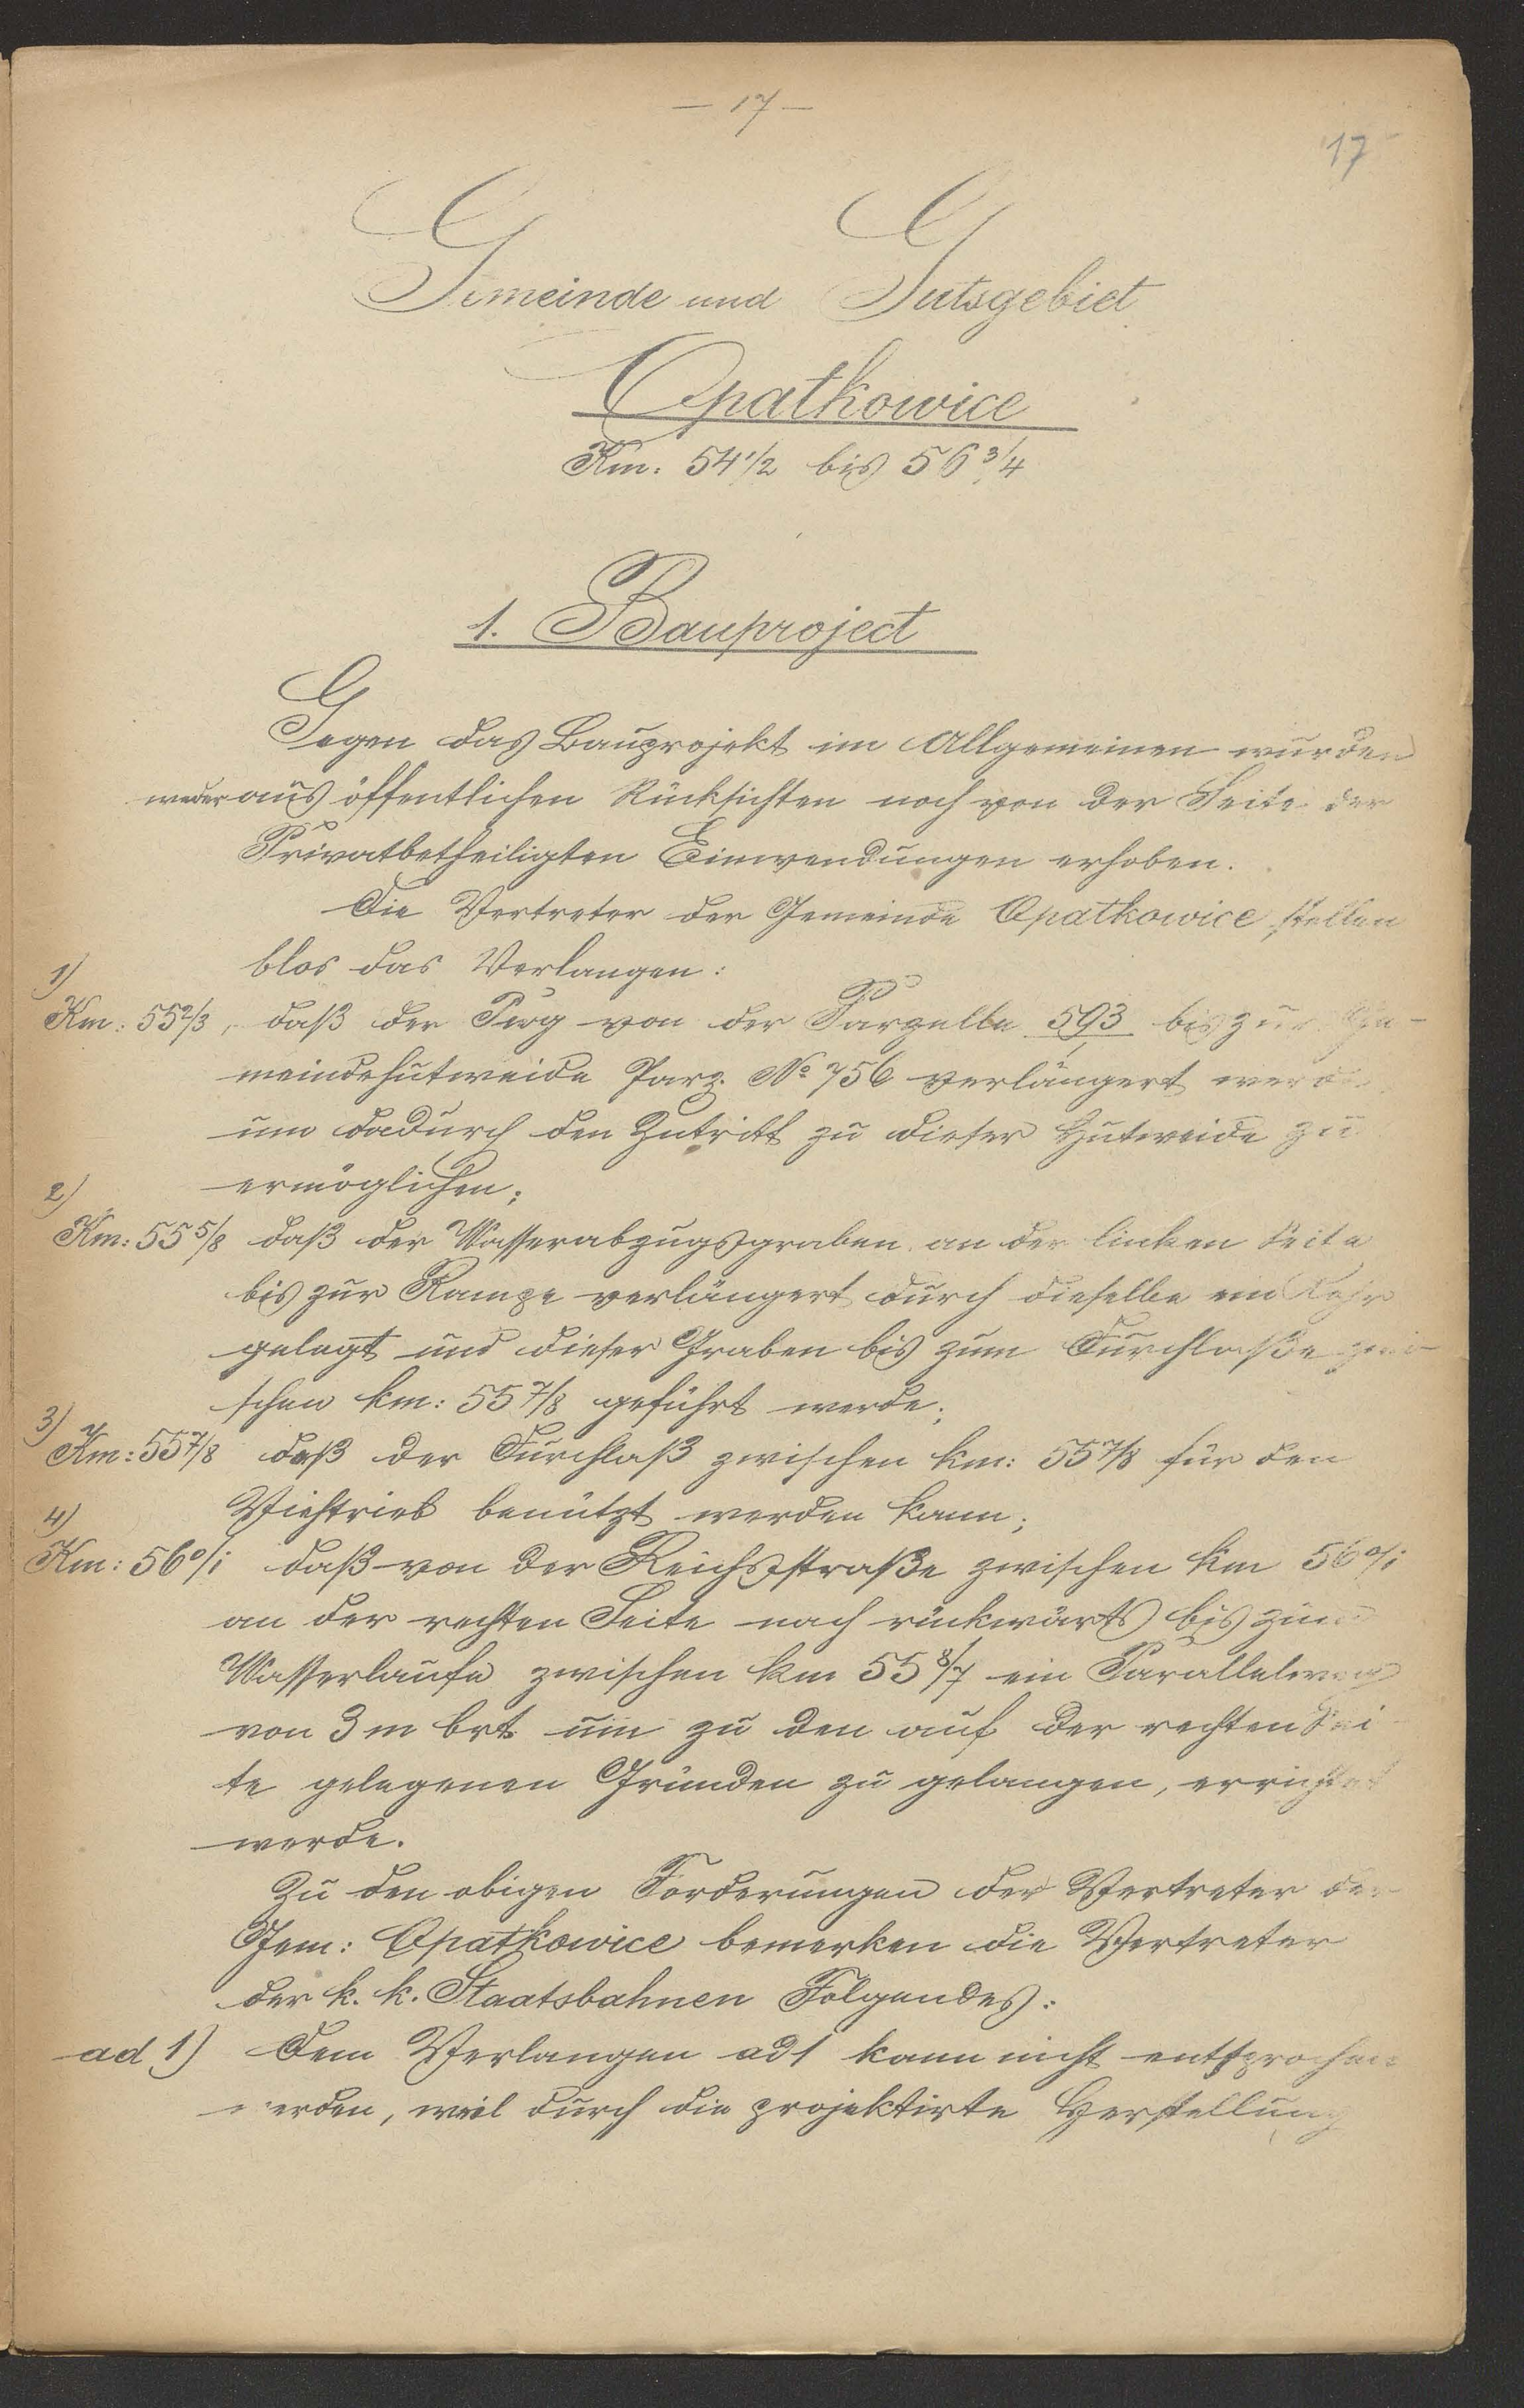 — 17 —
17
Gemeinde und Gutsgebiet
Opatkowice
Km. 54 1/2 bis 56 3/4
1. Bauproject
Gegen das Bauprojekt im Allgemeinen wurden
weder aus öffentlichen Rücksichten noch von der Seite der
Privatbetheiligten Einwendungen erhoben.
Die Vertreter der Gemeinde Opatkowice stellen
blos das Verlangen:
1)
Km: 55 2/3, daß der Weg von der Parzelle 593 bis zur Ge-
meindehutweide Parz. No 756 verlängert werde
um dadurch den Zutritt zu dieser Hutweide zu
ermöglichen;
2)
Km: 55 5/8 daß der Wasserabzugsgraben an der linken Seite
bis zur Rampe verlängert durch dieselbe ein Rohr
gelegt und dieser Graben bis zum Durchlaße zwi-
schen km: 55 7/8 geführt werde;
3)
Km: 55 7/8 daß der Durchlaß zwischen km: 55 7/8 für den
Viehtrieb benützt werden kann;
4)
Km: 56 0/1 daß von der Reichsstraße zwischen km 56 0/1
an der rechten Seite nach rückwärts bis zum
Wasserlaufe zwischen km 55 8/7 ein Parallelweg
von 3 m brt. um zu den auf der rechten Sei-
te gelegenen Gründen zu gelangen, errichtet
werde.
Zu den obigen Forderungen der Vertreter der
Gem: Opatkowice bemerken die Vertreter
der k. k. Staatsbahnen Folgendes:
ad 1) Dem Verlangen ad 1 kann nicht entsprochen
werden, weil durch die projektirte Herstellung